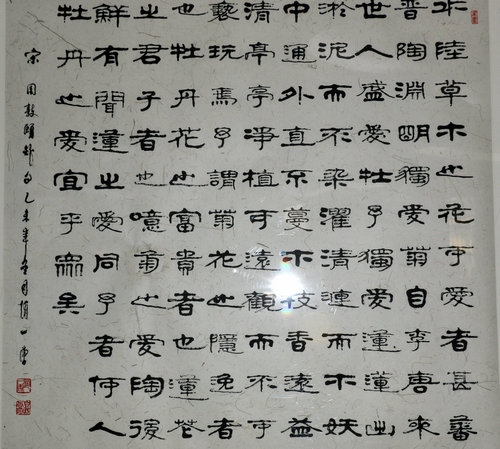 水陸草木之花可愛者甚蕃
晉陶淵明獨愛菊自李唐來
世人盛愛牡予獨愛蓮蓮出
淤泥而不染濯清漣而不妖
中通外直不蔓不枝香遠益
清亭亭淨植可遠觀而不可
褻玩焉予謂菊花之隱逸者
也牡丹花之富貴者也蓮花
之君子者也噫菊之愛陶後
鮮有聞蓮之愛同予者何人
牡丹之愛宜乎眾矣
宋周敦頤乙未年月